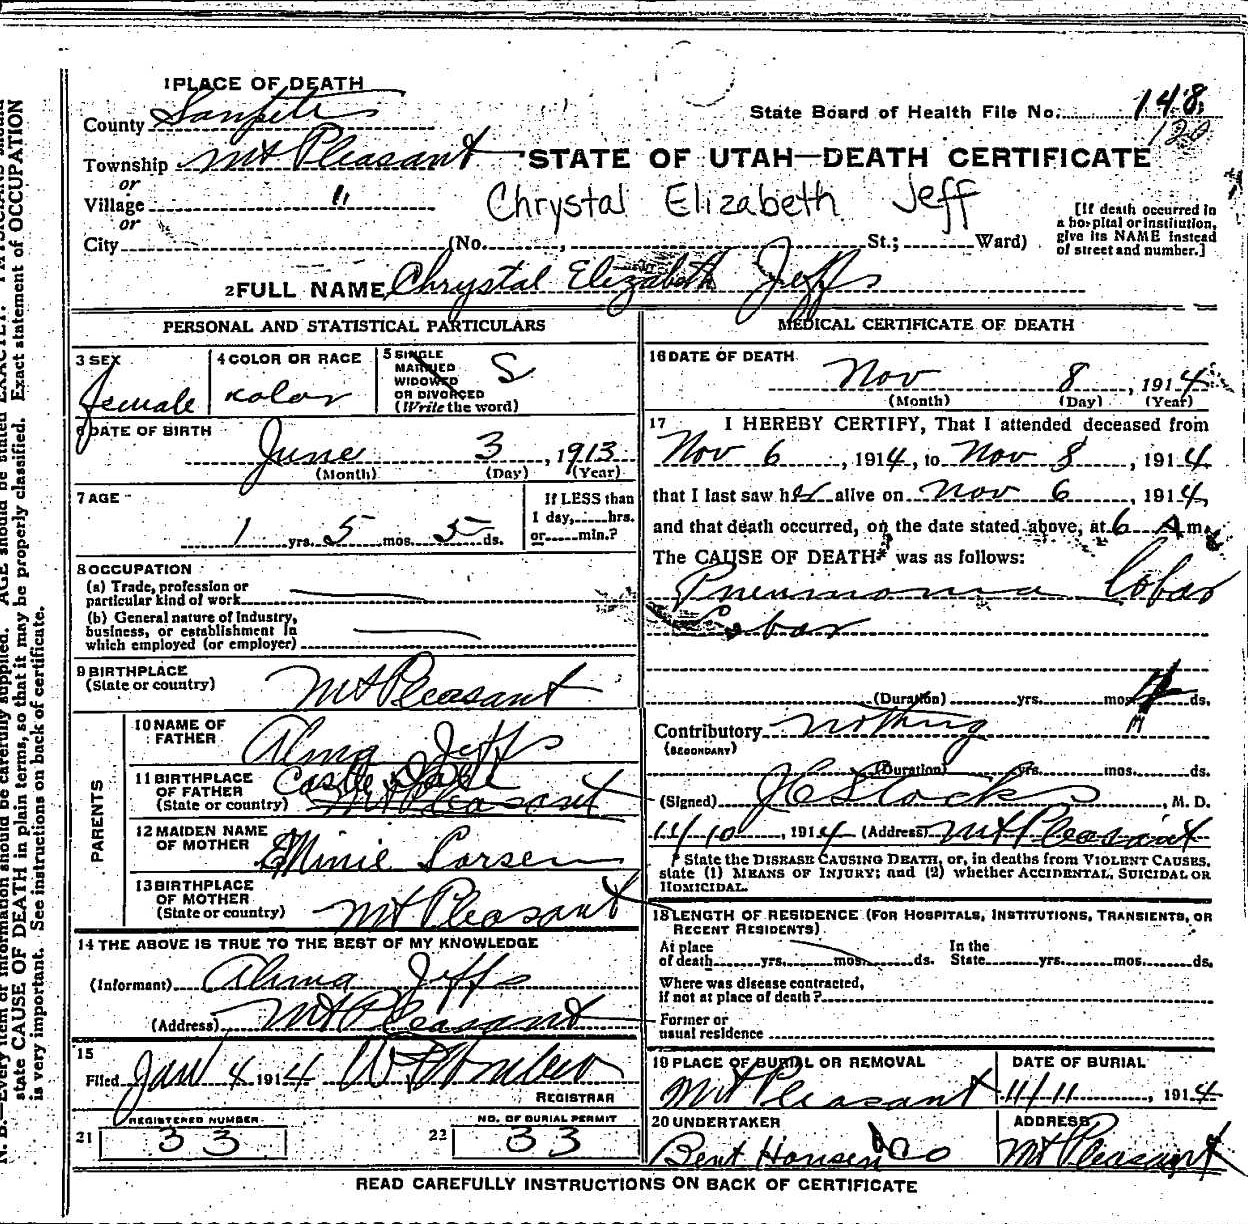 1 PLACE OF DEATH
County Sanpete
State Board of Health File No. 148
120
Township Mt Pleasant
STATE OF UTAH—DEATH CERTIFICATE
or
Village "
Chrystal Elizabeth Jeff
or
City (No. , St.; Ward)
[If death occurred in
a hospital or institution,
give its NAME instead
of street and number.]
2 FULL NAME Chrystal Elizabeth Jeffs
PERSONAL AND STATISTICAL PARTICULARS
3 SEX
female
4 COLOR OR RACE
kolor
5 SINGLE
MARRIED
WIDOWED
OR DIVORCED
(Write the word)
S
6 DATE OF BIRTH
June 3, 1913
(Month) (Day) (Year)
7 AGE
1 yrs. 5 mos. 5 ds.
If LESS than
1 day, hrs.
or min.?
8 OCCUPATION
(a) Trade, profession or
particular kind of work
(b) General nature of Industry,
business, or establishment in
which employed (or employer)
9 BIRTHPLACE
(State or country)
Mt Pleasant
PARENTS
10 NAME OF
FATHER
Alma Jeffs
11 BIRTHPLACE
OF FATHER
(State or country)
Castle Dale
Mt Pleasant
12 MAIDEN NAME
OF MOTHER
Minie Larsen
13 BIRTHPLACE
OF MOTHER
(State or country)
Mt Pleasant
14 THE ABOVE IS TRUE TO THE BEST OF MY KNOWLEDGE
(Informant) Alma Jeffs
(Address) Mt Pleasant
15
Filed Jan 4 1914
REGISTRAR
REGISTERED NUMBER
21 33
NO. OF BURIAL PERMIT
22 33
MEDICAL CERTIFICATE OF DEATH
16 DATE OF DEATH
Nov 8, 1914
(Month) (Day) (Year)
17 I HEREBY CERTIFY, That I attended deceased from
Nov 6, 1914, to Nov 8, 1914
that I last saw her alive on Nov 6, 1914,
and that death occurred, on the date stated above, at 6 A m.
The CAUSE OF DEATH* was as follows:
Pneumonia Lobar
Lobar
(Duration) yrs. mos. ds.
Contributory nothing
(SECONDARY)
(Duration) yrs. mos. ds.
(Signed) , M. D.
11/10, 1914 (Address) Mt Pleasant
* State the DISEASE CAUSING DEATH, or, in deaths from VIOLENT CAUSES,
state (1) MEANS OF INJURY; and (2) whether ACCIDENTAL, SUICIDAL OR
HOMICIDAL.
18 LENGTH OF RESIDENCE (FOR HOSPITALS, INSTITUTIONS, TRANSIENTS, OR
RECENT RESIDENTS)
At place
of death yrs. mos. ds.
In the
State yrs. mos. ds.
Where was disease contracted,
if not at place of death?
Former or
usual residence
19 PLACE OF BURIAL OR REMOVAL
Mt Pleasant
DATE OF BURIAL
11/11, 1914
20 UNDERTAKER
Bent Hansen
ADDRESS
Mt Pleasant
READ CAREFULLY INSTRUCTIONS ON BACK OF CERTIFICATE
N. B.—Every item of information should be carefully supplied. AGE should be stated EXACTLY. PHYSICIANS should
state CAUSE OF DEATH in plain terms, so that it may be properly classified. Exact statement of OCCUPATION
is very important. See instructions on back of certificate.